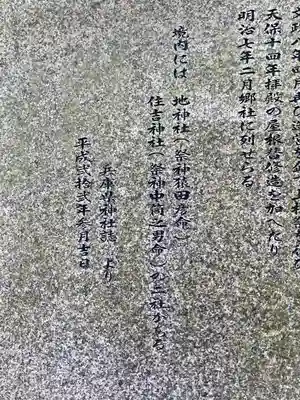 天保十四年拝殿の屋根替修造を加へたり
明治七年二月郷社に列せらる
境内には 地神社(祭神猿田彦命)
住吉神社(祭神中筒之男命)の二社がある
兵庫県神社誌 より
平成弐拾弐年 月吉日